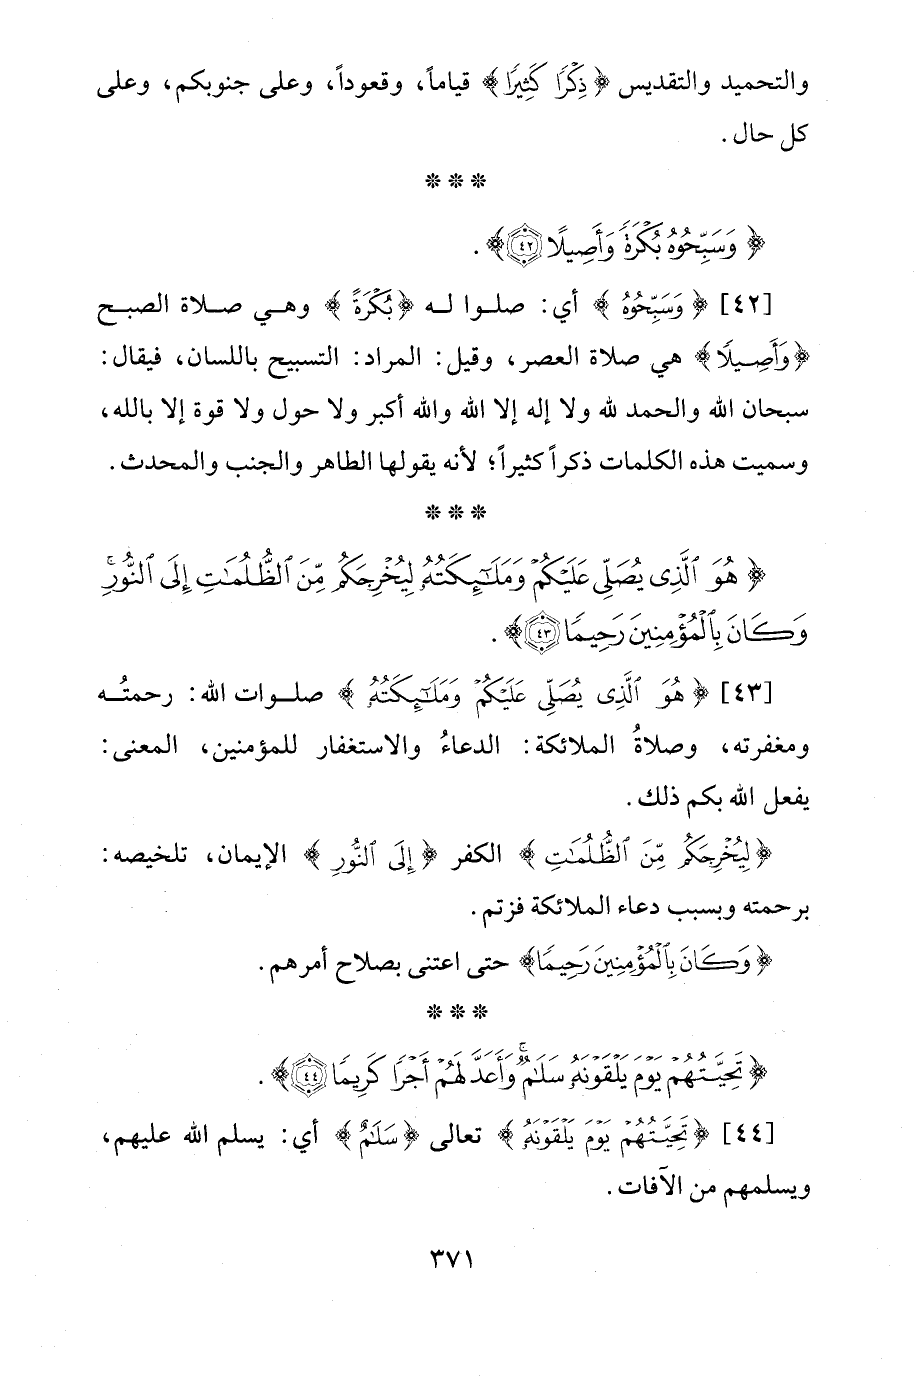 والتحميد والتقديس ﴿ذِكْرًا كَثِيرًا﴾ قياماً، وقعوداً، وعلى جنوبكم، وعلى
كل حال.
* * *
﴿وَسَبِّحُوهُ بُكْرَةً وَأَصِيلًا ٤٢﴾.
[٤٢] ﴿وَسَبِّحُوهُ﴾ أي: صلوا له ﴿بُكْرَةً﴾ وهي صلاة الصبح
﴿وَأَصِيلًا﴾ هي صلاة العصر، وقيل: المراد: التسبيح باللسان، فيقال:
سبحان الله والحمد لله ولا إله إلا الله والله أكبر ولا حول ولا قوة إلا بالله،
وسميت هذه الكلمات ذكراً كثيراً؛ لأنه يقولها الطاهر والجنب والمحدث.
* * *
﴿هُوَ ٱلَّذِى يُصَلِّى عَلَيْكُمْ وَمَلَـٰٓئِكَتُهُۥ لِيُخْرِجَكُم مِّنَ ٱلظُّلُمَـٰتِ إِلَى ٱلنُّورِ ۚ
وَكَانَ بِٱلْمُؤْمِنِينَ رَحِيمًا ٤٣﴾.
[٤٣] ﴿هُوَ ٱلَّذِى يُصَلِّى عَلَيْكُمْ وَمَلَـٰٓئِكَتُهُۥ﴾ صلوات الله: رحمتُه
ومغفرته، وصلاةُ الملائكة: الدعاءُ والاستغفار للمؤمنين، المعنى:
يفعل الله بكم ذلك.
﴿لِيُخْرِجَكُم مِّنَ ٱلظُّلُمَـٰتِ﴾ الكفر ﴿إِلَى ٱلنُّورِ﴾ الإيمان، تلخيصه:
برحمته وبسبب دعاء الملائكة فزتم.
﴿وَكَانَ بِٱلْمُؤْمِنِينَ رَحِيمًا﴾ حتى اعتنى بصلاح أمرهم.
* * *
﴿تَحِيَّتُهُمْ يَوْمَ يَلْقَوْنَهُۥ سَلَـٰمٌ ۚ وَأَعَدَّ لَهُمْ أَجْرًا كَرِيمًا ٤٤﴾.
[٤٤] ﴿تَحِيَّتُهُمْ يَوْمَ يَلْقَوْنَهُۥ﴾ تعالى ﴿سَلَـٰمٌ﴾ أي: يسلم الله عليهم،
ويسلمهم من الآفات.
٣٧١